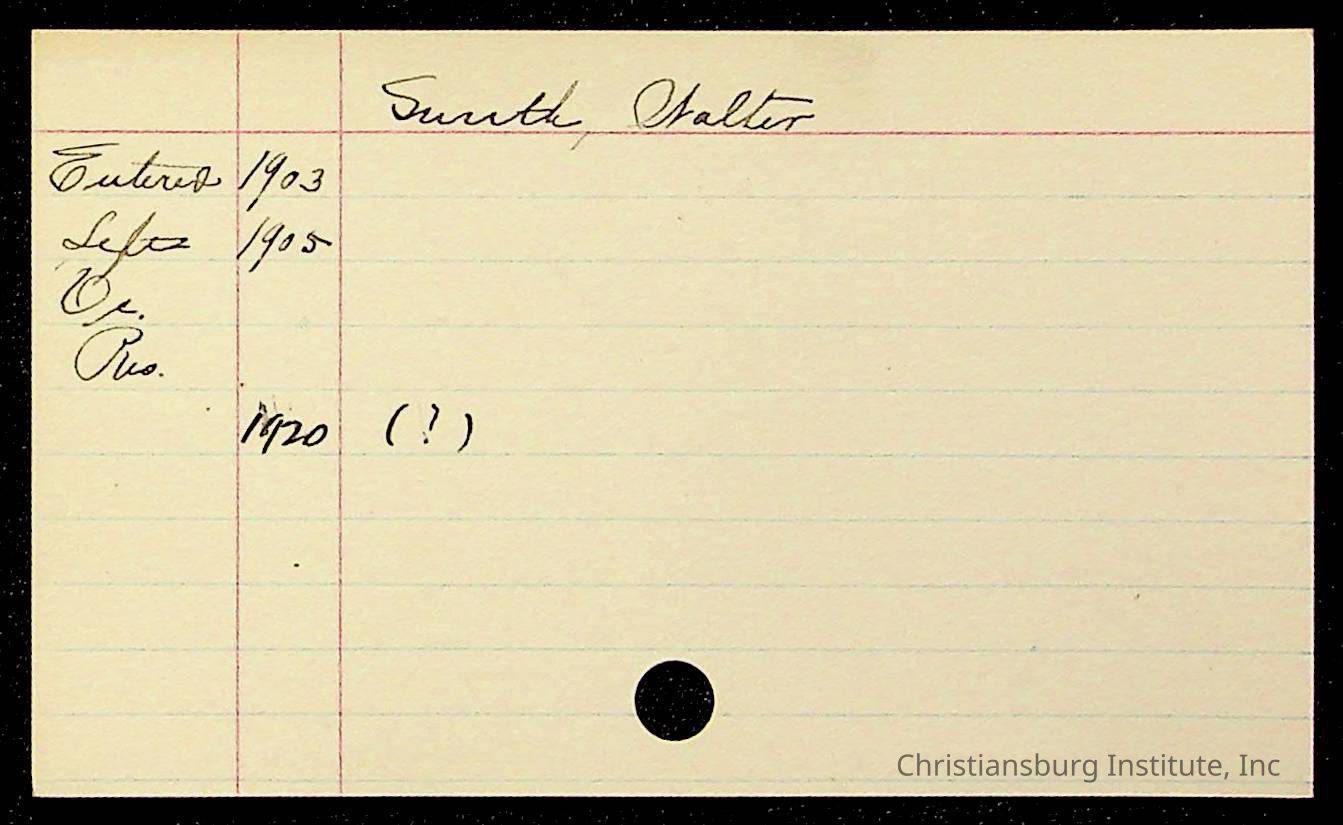 Smith, Walter
Entered 1903
Left 1905
Oc.
Res.
1920 (?)
Christiansburg Institute, Inc